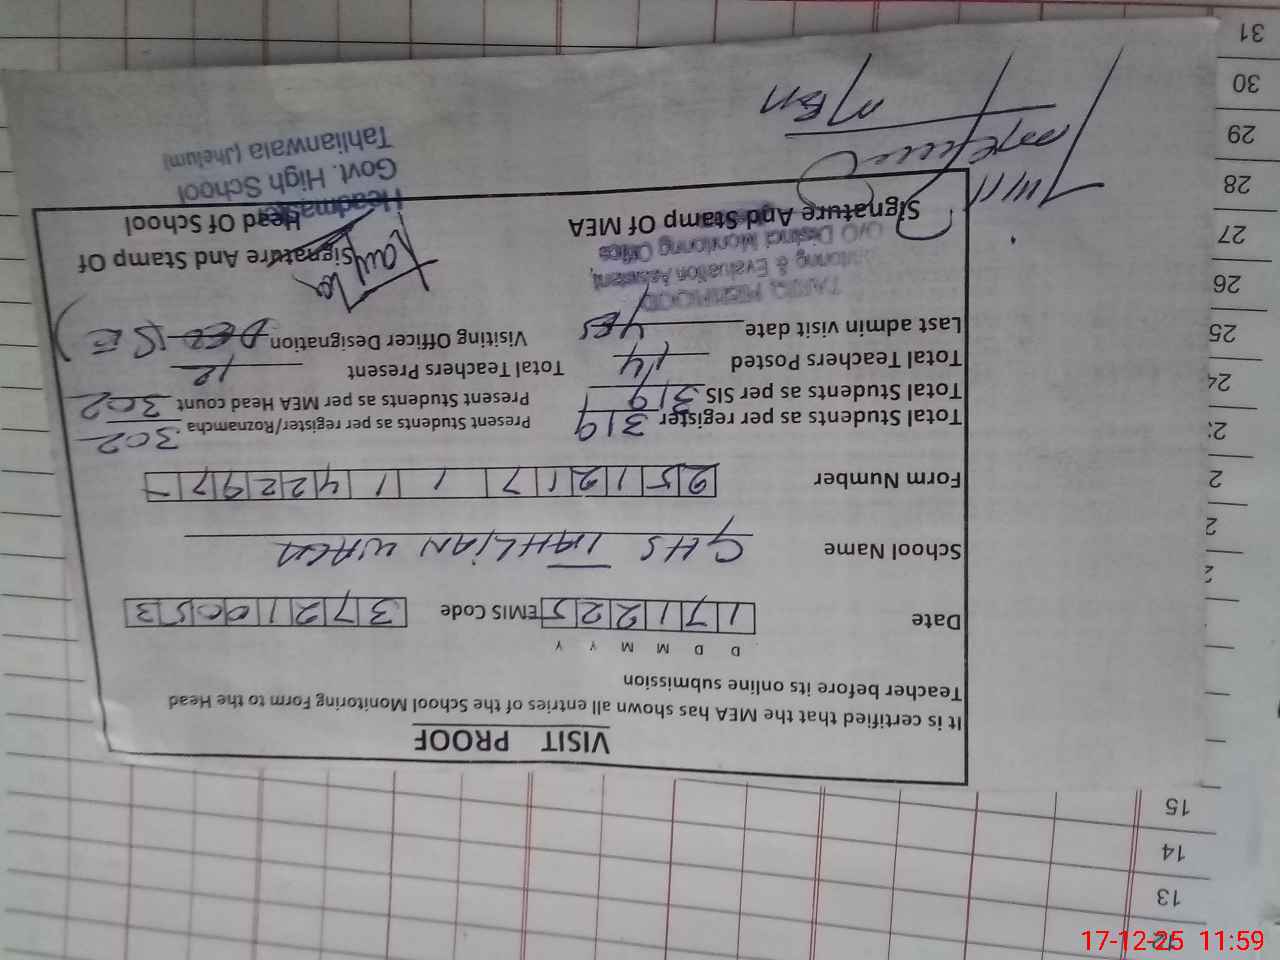 VISIT PROOF
It is certified that the MEA has shown all entries of the School Monitoring Form to the Head
Teacher before its online submission
D D M M Y Y
Date 1 7 1 2 2 5 EMIS Code 3 7 2 1 0 0 5 3
School Name GHS TAHLIAN WALA
Form Number 2 5 1 2 1 7 1 1 4 2 2 9 7 -
Total Students as per register 319 Present Students as per register/Roznamcha 302
Total Students as per SIS 319 Present Students as per MEA Head count 302
Total Teachers Posted 14 Total Teachers Present 12
Last admin visit date YES Visiting Officer Designation DEO (SE)
TARIQ MEHMOOD
Monitoring & Evaluation Assistant
O/O District Monitoring Office
Signature And Stamp Of MEA
Signature And Stamp Of
Head Of School
Headmaster
Govt. High School
Tahlianwala (Jhelum)
12
13
14
15
2
2
2
2
24
25
26
27
28
29
30
31
17-12-25 11:59